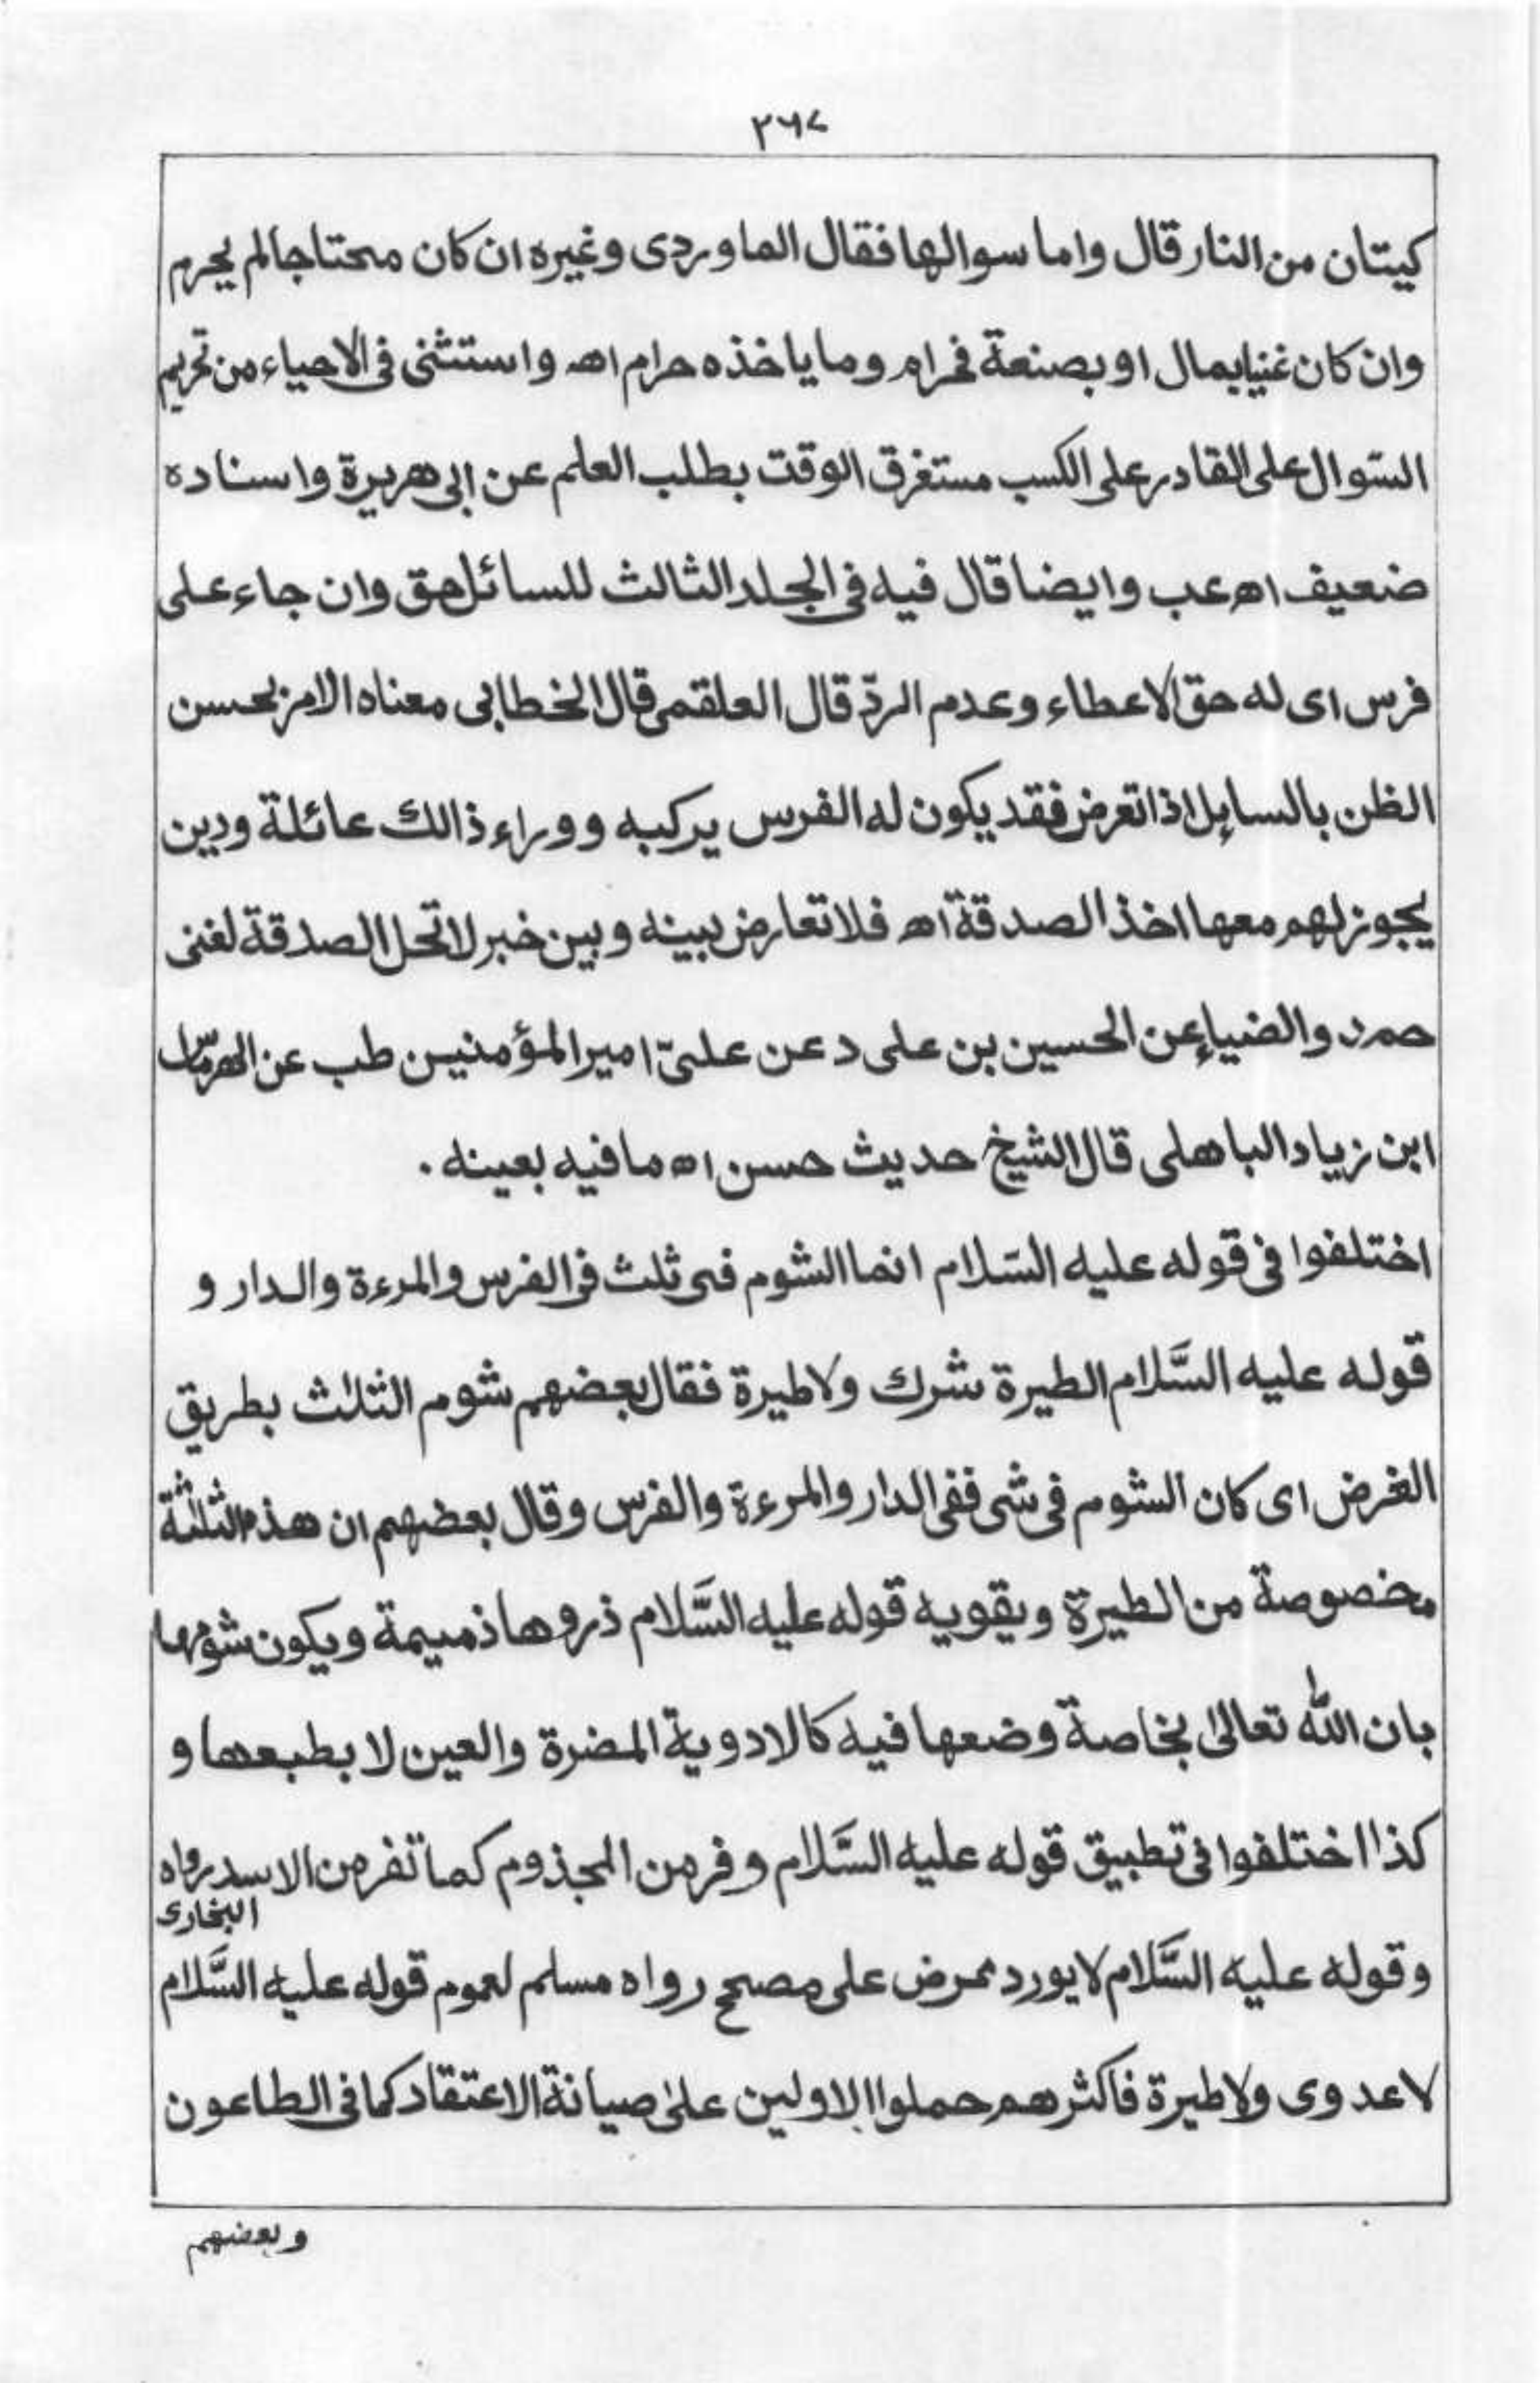 ٢٦٧
كيتان من النار قال واما سوالها فقال الماوردى وغيره ان كان محتاجا لم يحرم
وان كان غنيا بمال او بصنعة فحرام وما ياخذه حرام اه واستثنى فى الاحياء من تحريم
السّوال على القادر على الكسب مستغرق الوقت بطلب العلم عن ابى هريرة واسناده
ضعيف اه عب وايضا قال فيه فى الجلد الثالث للسائل حق وان جاء على
فرس اى له حق الاعطاء وعدم الردّ قال العلقمى قال الخطابى معناه الامر بحسن
الظن بالسايل اذا تعرض فقد يكون له الفرس يركبه ووراء ذالك عائلة ودين
يجوز لهم معها اخذ الصدقة اه فلا تعارض بينه وبين خبر لا تحل الصدقة لغنى
حم د والضياء عن الحسين بن على د عن علىّ امير المؤمنين طب عن الهرمّاس
ابن زياد الباهلى قال الشيخ حديث حسن اه ما فيه بعينه .
اختلفوا فى قوله عليه السّلام انما الشوم فى ثلث فى الفرس والمرءة والدار و
قوله عليه السَّلام الطيرة شرك ولا طيرة فقال بعضهم شوم الثلاث بطريق
الفرض اى كان الشوم فى شى ففى الدار والمرءة والفرس وقال بعضهم ان هذه الثلثة
مخصوصة من الطيرة ويقويه قوله عليه السَّلام ذروها ذميمة ويكون شومها
بان الله تعالىٰ بخاصة وضعها فيه كالادوية المضرة والعين لا بطبعها و
كذا اختلفوا فى تطبيق قوله عليه السَّلام وفر من المجذوم كما تفر من الاسد رواه
البخارى
وقوله عليه السَّلام لا يورد ممرض على مصحح رواه مسلم لعموم قوله عليه السَّلام
لا عدوى ولا طيرة فاكثرهم حملوا الاولين علىٰ صيانة الاعتقاد كما فى الطاعون
وبعضهم